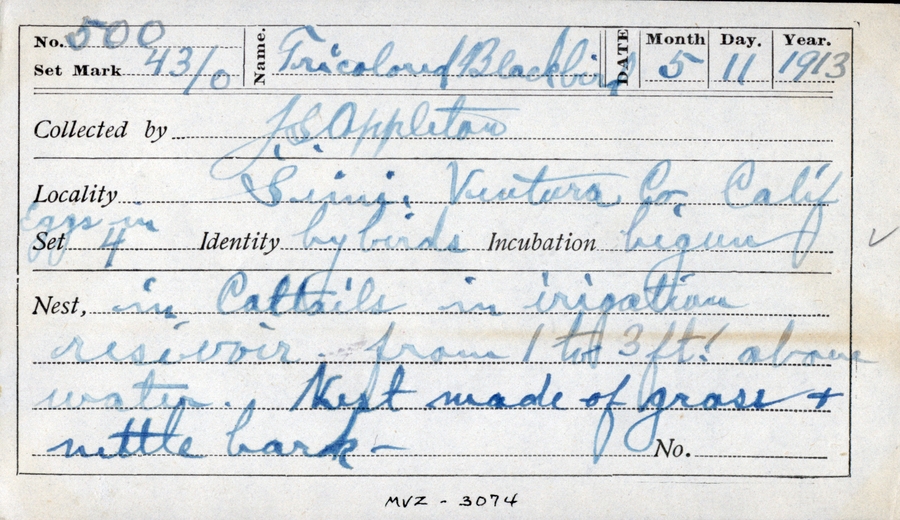 No. 500 Name. Tricolored Blackbird DATE Month 5 Day. 11 Year. 1913
Set Mark 43/0
Collected by J.S. Appleton
Locality Simi, Ventura Co. Calif
Eggs in
Set 4 Identity by birds Incubation begun
Nest, in Cattails in irigation
resivoir. from 1 to 3 ft. above
water. Nest made of grass +
nettle bark - No.
MVZ - 3074